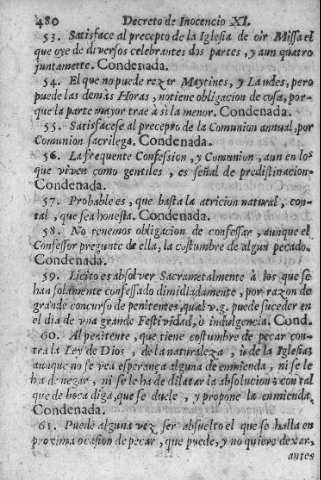 480 Decreto de Inocencio XI.
53. Satisface al precepto de la Iglesia de oir Missa el
que oye de diversos celebrantes dos partes, y aun quatro
juntamente. Condenada.
54. El que no puede rezar Maytines, y Laudes, pero
puede las demàs Horas, no tiene obligacion de cosa, por-
que la parte mayor trae à si la menor. Condenada.
55. Satisfacese al precepto de la Comunion annual, por
Comunion sacrilega. Condenada.
56. La frequente Confession, y Comunion, aun en los
que viven como gentiles, es señal de predistinacion.
Condenada.
57. Probable es, que basta la atricion natural, con-
tal, que sea honesta. Condenada.
58. No tenemos obligacion de confessar, aunque el
Confessor pregunte de ella, la costumbre de algun pecado.
Condenada.
59. Licito es absolver Sacrametalmente à los que se
han solamente confessado dimidiadamente, por razon de
grande concurso de penitentes, qual v.g. puede suceder en
el dia de vna grande Festividad, ò indulgencia. Cond.
60. Al penitente, que tiene costumbre de pecar con-
tra la Ley de Dios, de la naturaleza, ù de la Iglesia,
aunque no se vea esperança alguna de enmienda, ni se le
ha de negar, ni se le ha de dilatar la absolucion, con tal
que de boca diga, que se duele, y propone la enmienda.
Condenada.
61. Puede alguna vez ser absuelto el que se halla en
proxima ocasion de pecar, que puede, y no quiere dexar,
antes